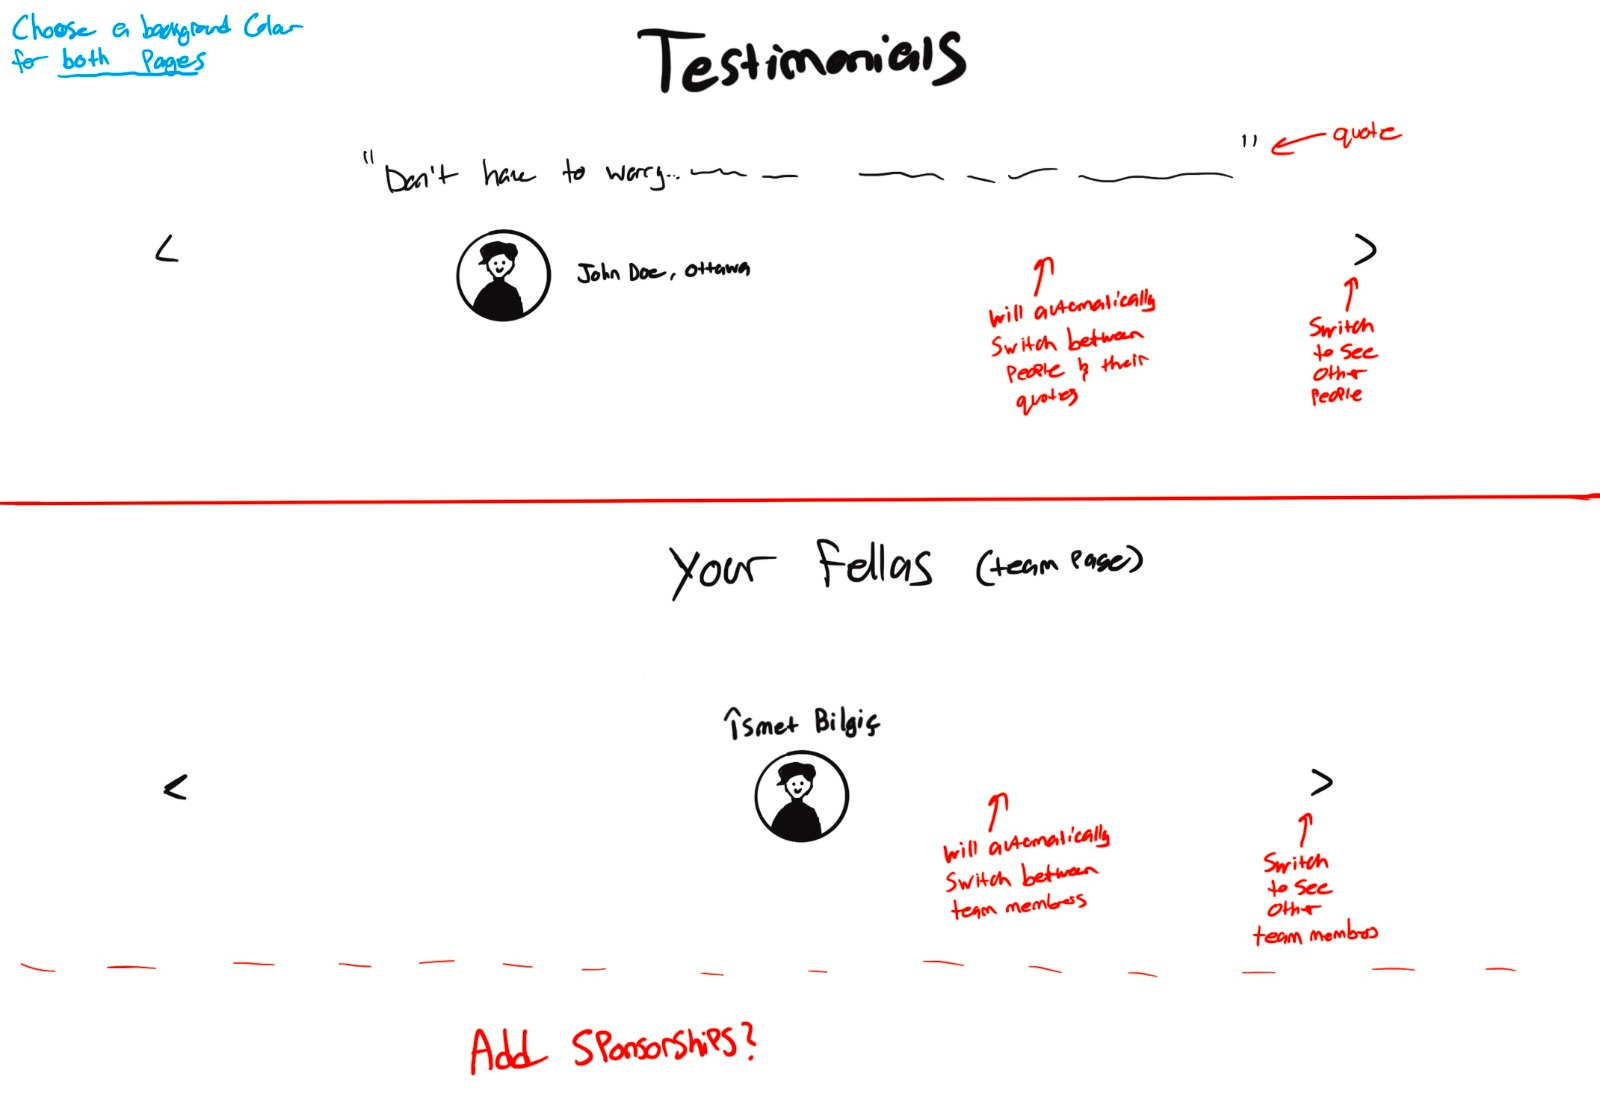 Choose a background Color
for both Pages
Testimonials
"Don't have to worry... "
quote
<
John Doe, Ottawa
>
Will automatically
Switch between
People & their
quotes
Switch
to see
other
People
Your Fellas (team Page)
Îsmet Bilgiç
<
>
Will automatically
Switch between
team members
Switch
to see
other
team members
Add Sponsorships?